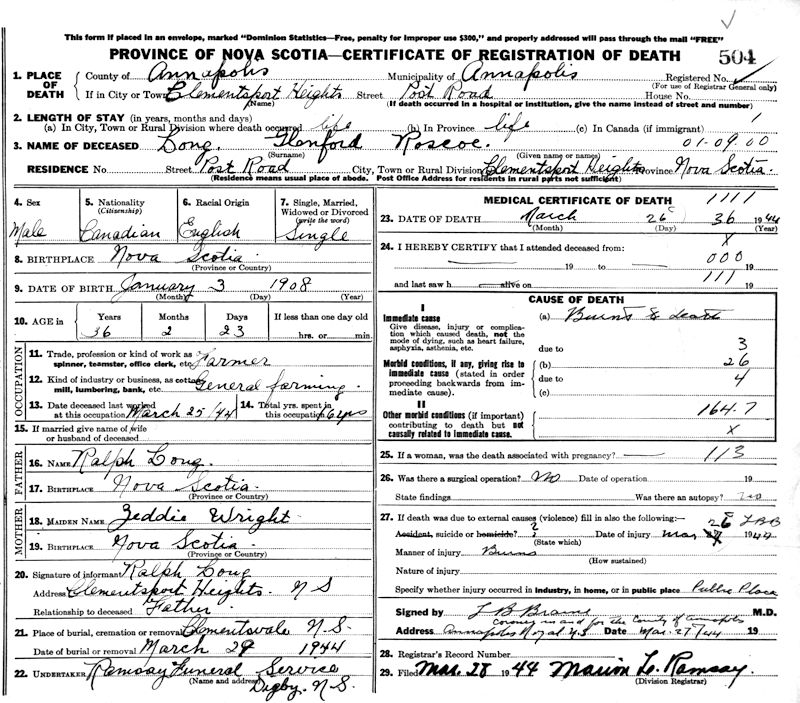 This form if placed in an envelope, marked "Dominion Statistics—Free, penalty for improper use $300," and properly addressed will pass through the mail "FREE"
PROVINCE OF NOVA SCOTIA—CERTIFICATE OF REGISTRATION OF DEATH 504
1. PLACE OF DEATH County of Annapolis Municipality of Annapolis Registered No.
(For use of Registrar General only)
If in City or Town Clementsport Heights Street Post Road House No.
(Name) (If death occurred in a hospital or institution, give the name instead of street and number)
2. LENGTH OF STAY (in years, months and days)
(a) In City, Town or Rural Division where death occurred life (b) In Province life (c) In Canada (if immigrant) 1
3. NAME OF DECEASED Long, Glenford Roscoe. 01-09.00
(Surname) (Given name or names)
RESIDENCE No. Street Post Road City, Town or Rural Division Clementsport Heights Province Nova Scotia.
(Residence means usual place of abode. Post Office Address for residents in rural parts not sufficient)
4. Sex 5. Nationality 6. Racial Origin 7. Single, Married,
(Citizenship) Widowed or Divorced
(write the word)
Male Canadian English Single
8. BIRTHPLACE Nova Scotia
(Province or Country)
9. DATE OF BIRTH January 3 1908
(Month) (Day) (Year)
10. AGE in Years Months Days If less than one day old
36 2 23 hrs. or min.
OCCUPATION
11. Trade, profession or kind of work as Farmer
spinner, teamster, office clerk, etc.
12. Kind of industry or business, as cotton General farming.
mill, lumbering, bank, etc.
13. Date deceased last worked 14. Total yrs. spent in
at this occupation March 25/44 this occupation 16 yrs
15. If married give name of wife
or husband of deceased
FATHER
16. NAME Ralph Long.
17. BIRTHPLACE Nova Scotia
(Province or Country)
MOTHER
18. MAIDEN NAME Zeddie Wright
19. BIRTHPLACE Nova Scotia
(Province or Country)
20. Signature of informant Ralph Long
Address Clementsport Heights. N S
Relationship to deceased Father
21. Place of burial, cremation or removal Clementsvale N.S.
Date of burial or removal March 29 1944
22. UNDERTAKER Ramsay Funeral Service
(Name and address) Digby. N.S.
MEDICAL CERTIFICATE OF DEATH 1111
23. DATE OF DEATH March 26 36 1944
(Month) (Day) (Year)
24. I HEREBY CERTIFY that I attended deceased from: X
19 to 000 19
and last saw h alive on 111 19
CAUSE OF DEATH
I
Immediate cause (a) Burns & death
Give disease, injury or complication which caused death, not the mode of dying, such as heart failure, asphyxia, asthenia, etc.
due to 3
Morbid conditions, if any, giving rise to immediate cause (stated in order proceeding backwards from immediate cause).
(b) 26
due to 4
(c)
II
Other morbid conditions (if important) contributing to death but not causally related to immediate cause.
164.7
X
25. If a woman, was the death associated with pregnancy? 113
26. Was there a surgical operation? No Date of operation 19
State findings Was there an autopsy? no
27. If death was due to external causes (violence) fill in also the following:— 26 LBB
Accident, suicide or homicide? ? Date of injury Mar 1944
(State which)
Manner of injury Burns
(How sustained)
Nature of injury
Specify whether injury occurred in industry, in home, or in public place Public Place
Signed by L B Braine M.D.
coroner in and for the County of Annapolis
Address Annapolis Royal N.S Date Mar. 27/44 19
28. Registrar's Record Number
29. Filed Mar. 28 1944 Marion L. Ramsay.
(Division Registrar)